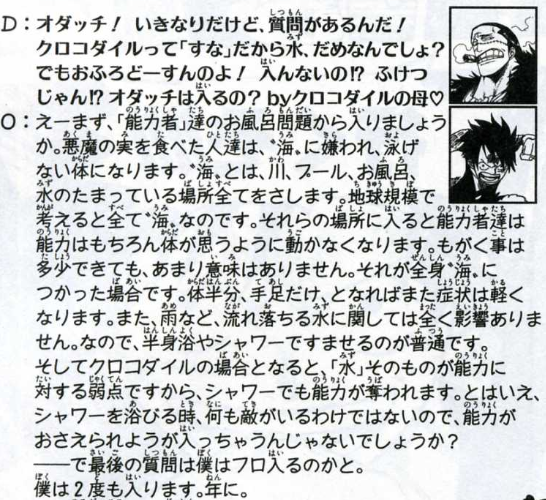 D：オダッチ！ いきなりだけど、質問があるんだ！
クロコダイルって「すな」だから水、だめなんでしょ？
でもおふろどーすんのよ！ 入んないの!? ふけつ
じゃん!? オダッチは入るの？ byクロコダイルの母♡
O：えーまず、「能力者」達のお風呂問題から入りましょう
か。悪魔の実を食べた人達は、〝海〟に嫌われ、泳げ
ない体になります。〝海〟とは、川、プール、お風呂、
水のたまっている場所全てをさします。地球規模で
考えると全て〝海〟なのです。それらの場所に入ると能力者達は
能力はもちろん体が思うように動かなくなります。もがく事は
多少できても、あまり意味はありません。それが全身〝海〟に
つかった場合です。体半分、手足だけ、となればまた症状は軽く
なります。また、雨など、流れ落ちる水に関しては全く影響ありま
せん。なので、半身浴やシャワーですませるのが普通です。
そしてクロコダイルの場合となると、「水」そのものが能力に
対する弱点ですから、シャワーでも能力が奪われます。とはいえ、
シャワーを浴びる時、何も敵がいるわけではないので、能力が
おさえられようが入っちゃうんじゃないでしょうか？
――で最後の質問は僕はフロ入るのかと。
僕は2度も入ります。年に。